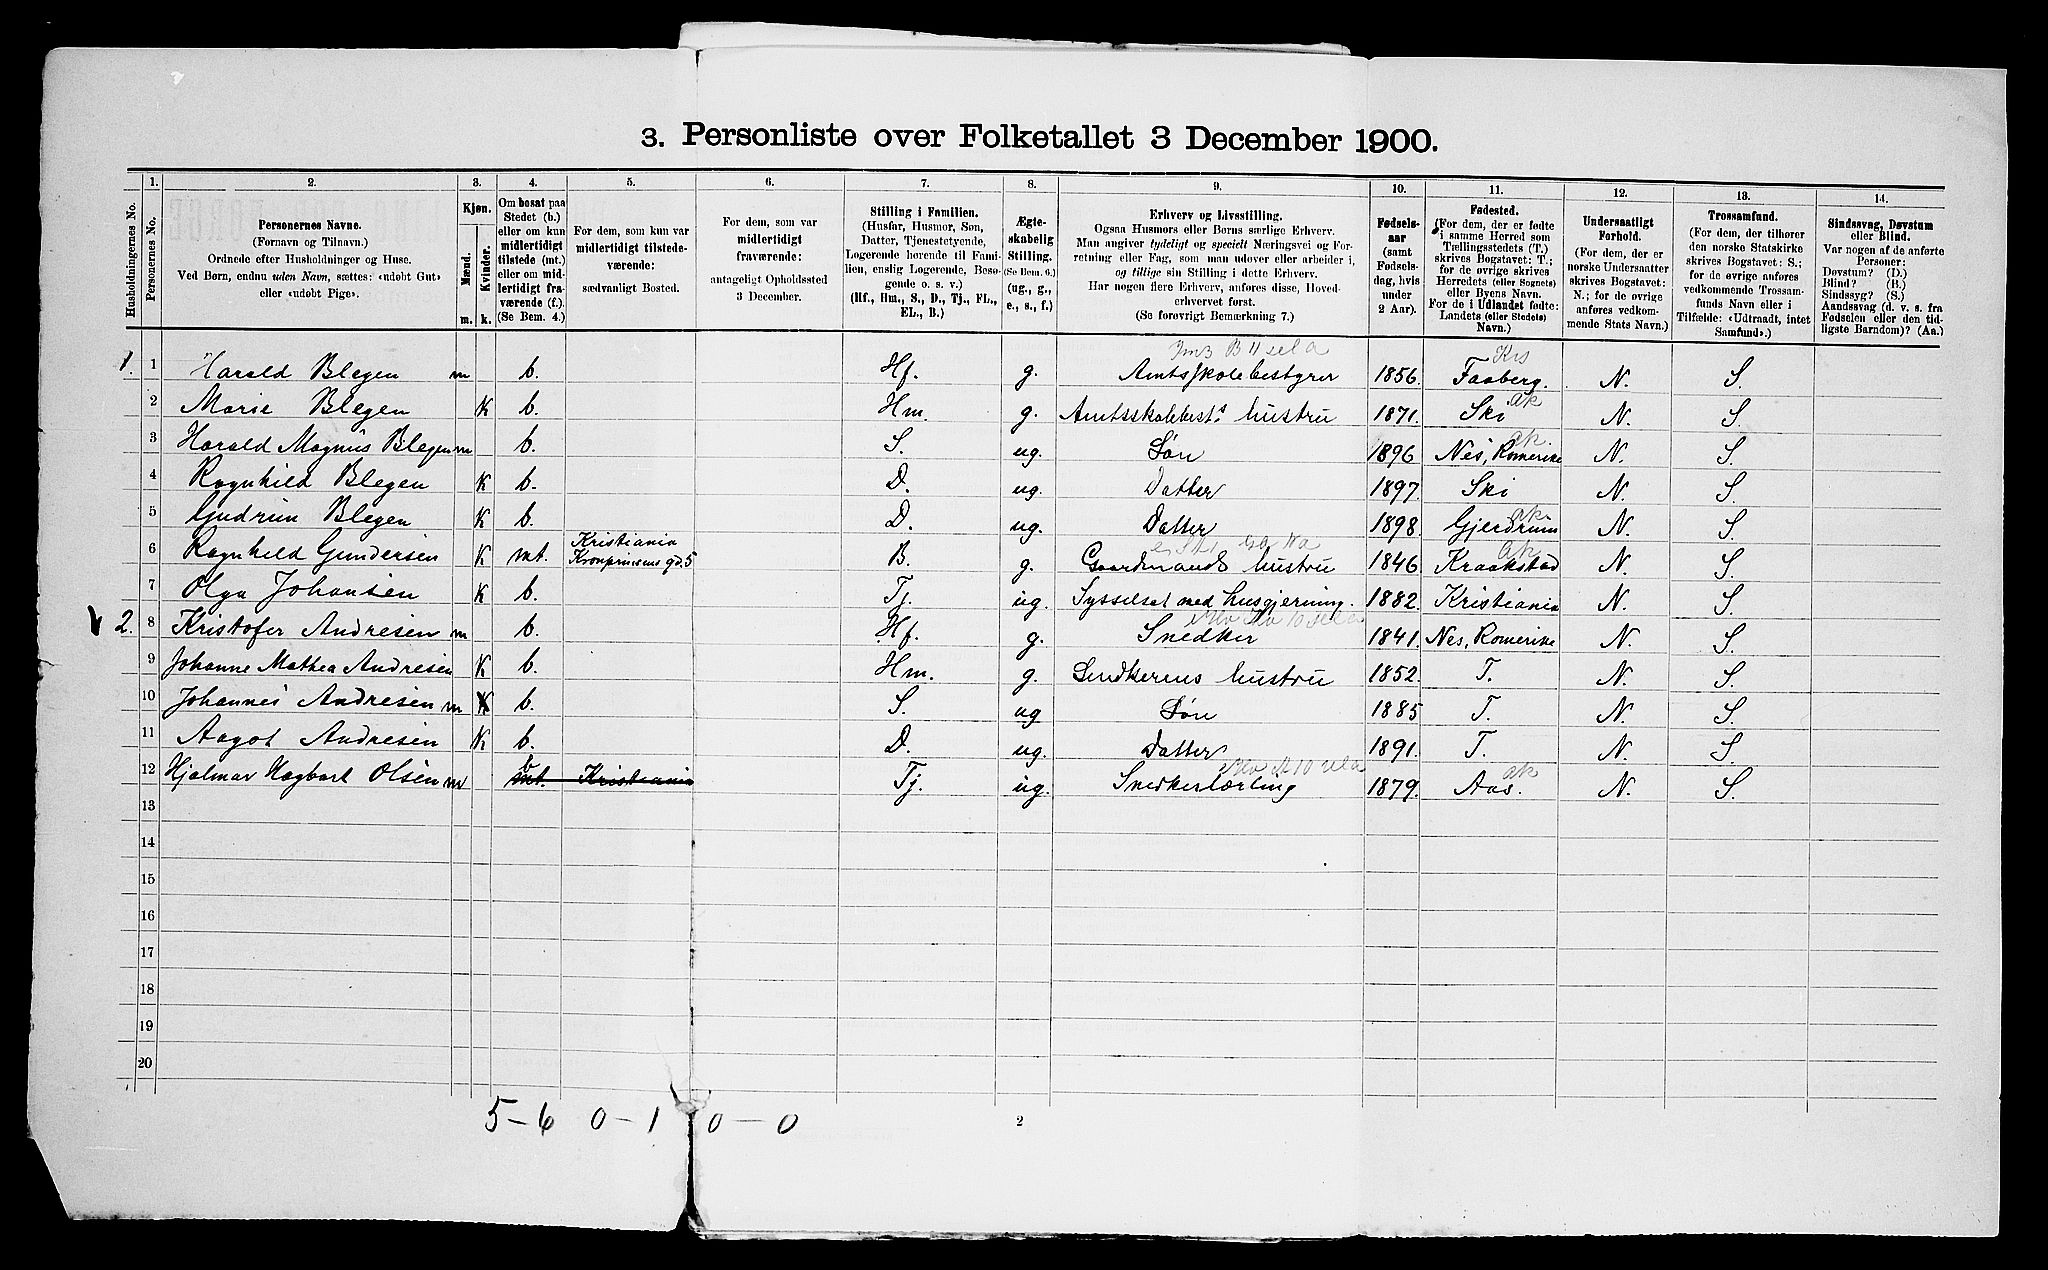 3. Personliste over Folketallet 3 December 1900.
Husholdningernes No.
1. Personernes No.
2. Personernes Navne.
(Fornavn og Tilnavn.)
Ordnede efter Husholdninger og Huse.
Ved Børn, endnu uden Navn, sættes: «udøbt Gut»
eller «udøbt Pige».
3. Kjøn.
Mænd. Kvinder.
m. k.
4.
Om bosat paa
Stedet (b.)
eller om kun
midlertidigt
tilstede (mt.)
eller om mid-
lertidigt fra-
værende (f.).
(Se Bem. 4.)
5.
For dem, som kun var
midlertidigt tilstede-
værende:
sædvanligt Bosted.
6.
For dem, som var
midlertidigt
fraværende:
antageligt Opholdssted
3 December.
7.
Stilling i Familien.
(Husfar, Husmor, Søn,
Datter, Tjenestetyende,
Logerende hørende til Fami-
lien, enslig Logerende, Besø-
gende o. s. v.)
(Hf., Hm., S., D., Tj., FL.,
EL., B.)
8.
Ægte-
skabelig
Stilling.
(Se Bem. 6.)
(ug., g.,
e., s., f.)
9.
Erhverv og Livsstilling.
Ogsaa Husmors eller Børns særlige Erhverv.
Man angiver tydeligt og specielt Næringsvei og For-
retning eller Fag, som man udøver eller arbeider i,
og tillige sin Stilling i dette Erhverv.
Har nogen flere Erhverv, anføres disse, Hoved-
erhvervet først.
(Se forøvrigt Bemærkning 7.)
10.
Fødsels-
aar
(samt
Fødsels-
dag, hvis
under
2 Aar).
11.
Fødested.
(For dem, der er fødte
i samme Herred som
Tællingsstedets (T.)
skrives Bogstavet: T.;
for de øvrige skrives
Herredets (eller Sognets)
eller Byens Navn.
For de i Udlandet fødte:
Landets (eller Stedets)
Navn.)
12.
Undersaatligt
Forhold.
(For dem, der er
norske Undersaatter
skrives Bogstavet:
N.; for de øvrige
anføres vedkom-
mende Stats Navn.)
13.
Trossamfund.
(For dem, der tilhører
den norske Statskirke
skrives Bogstavet: S.;
for de øvrige anføres
vedkommende Trossam-
funds Navn eller i
Tilfælde: «Udtraadt, intet
Samfund».)
14.
Sindssvag, Døvstum
eller Blind.
Var nogen af de anførte
Personer:
Døvstum? (D.)
Blind? (B.)
Sindssyg? (S.)
Aandssvag (d. v. s. fra
Fødselen eller den tid-
ligste Barndom)? (Aa.)
1. 1 Harald Blegen m b. Hf. g. Amtsskolebestyrer 1856. Faaberg. Krs N. S.
2 Marie Blegen K b. Hm. g. Amtsskolebest.s hustru 1871. Ski ak N. S.
3 Harald Magnus Blegen m b. S. ug. Søn 1896 Nes, Romerike ak. N. S.
4 Ragnhild Blegen K b. D. ug. Datter 1897. Ski N. S.
5 Gudrun Blegen K b. D. ug. Datter 1898. Gjerdrum ak N. S.
6 Ragnhild Gundersen K mt. Kristiania
Kronprinsens gd. 5 B. g. Gaardmands hustru 1846 Kraakstad ak N. S.
7 Olga Johansen K b. Tj. ug. Sysselsat med husgjerning. 1882. Kristiania N. S.
2. 8 Kristofer Andresen m b. Hf. g. Snedker 1841. Nes, Romerike N. S.
9 Johanne Mathea Andresen K b. Hm. g. Snedkerens hustru 1852. T. N. S.
10 Johannes Andresen m K b. S. ug Søn 1885 T. N. S.
11 Aagot Andresen K b. D. ug. Datter 1891. T. N. S.
12 Hjalmar Hagbart Olsen m b mt. Kristiania Tj. ug. Snedkerlærling 1879. Aas. ak N. S.
13
14
15
16
17
18
19
20
5–6 0–1 0–0
2